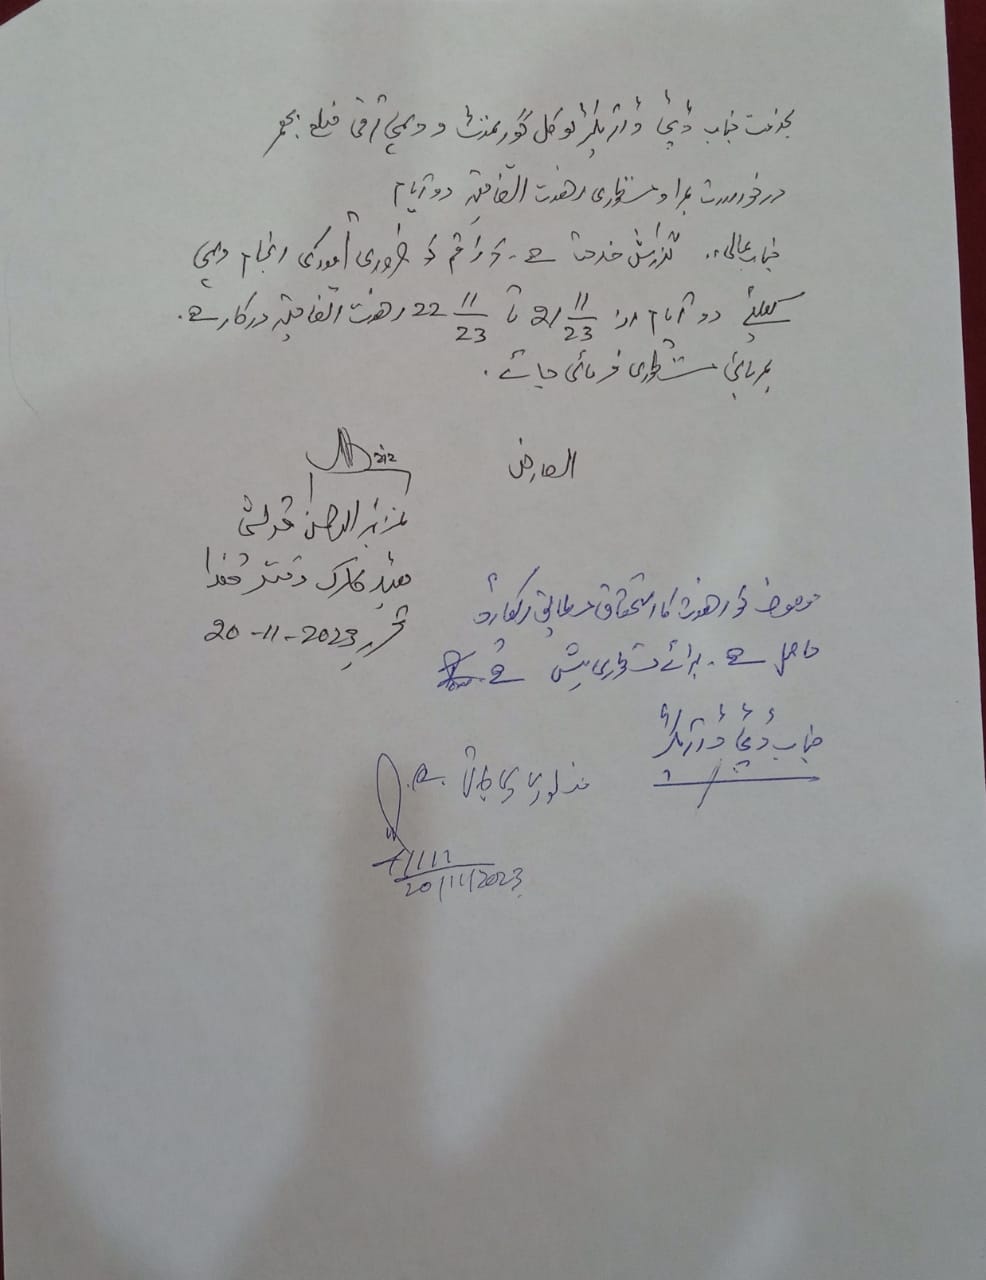 بخدمت جناب ڈپٹی ڈائریکٹر لوکل گورنمنٹ و دیہی ترقی ضلع
درخواست بمراد منظوری رخصت اتفاقیہ دو ایام
جناب عالی،، گزارش خدمت ہے۔ کہ راقم کو ضروری امور کی انجام دہی
کیلئے دو ایام از 21 11/23 تا 22 11/23 رخصت اتفاقیہ درکار ہے۔
مہربانی منظوری فرمائی جائے۔
العارض
Aziz
عزیز الرحمن قریشی
ہیڈ کلرک دفتر ھذا
تحریر 20-11-2023
موصوف کو رخصت کا استحقاق مطابق ریکارڈ
حاصل ہے۔ برائے منظوری پیش ہے۔
جناب ڈپٹی ڈائریکٹر
منظوری دی جاتی ہے۔
20/11/2023